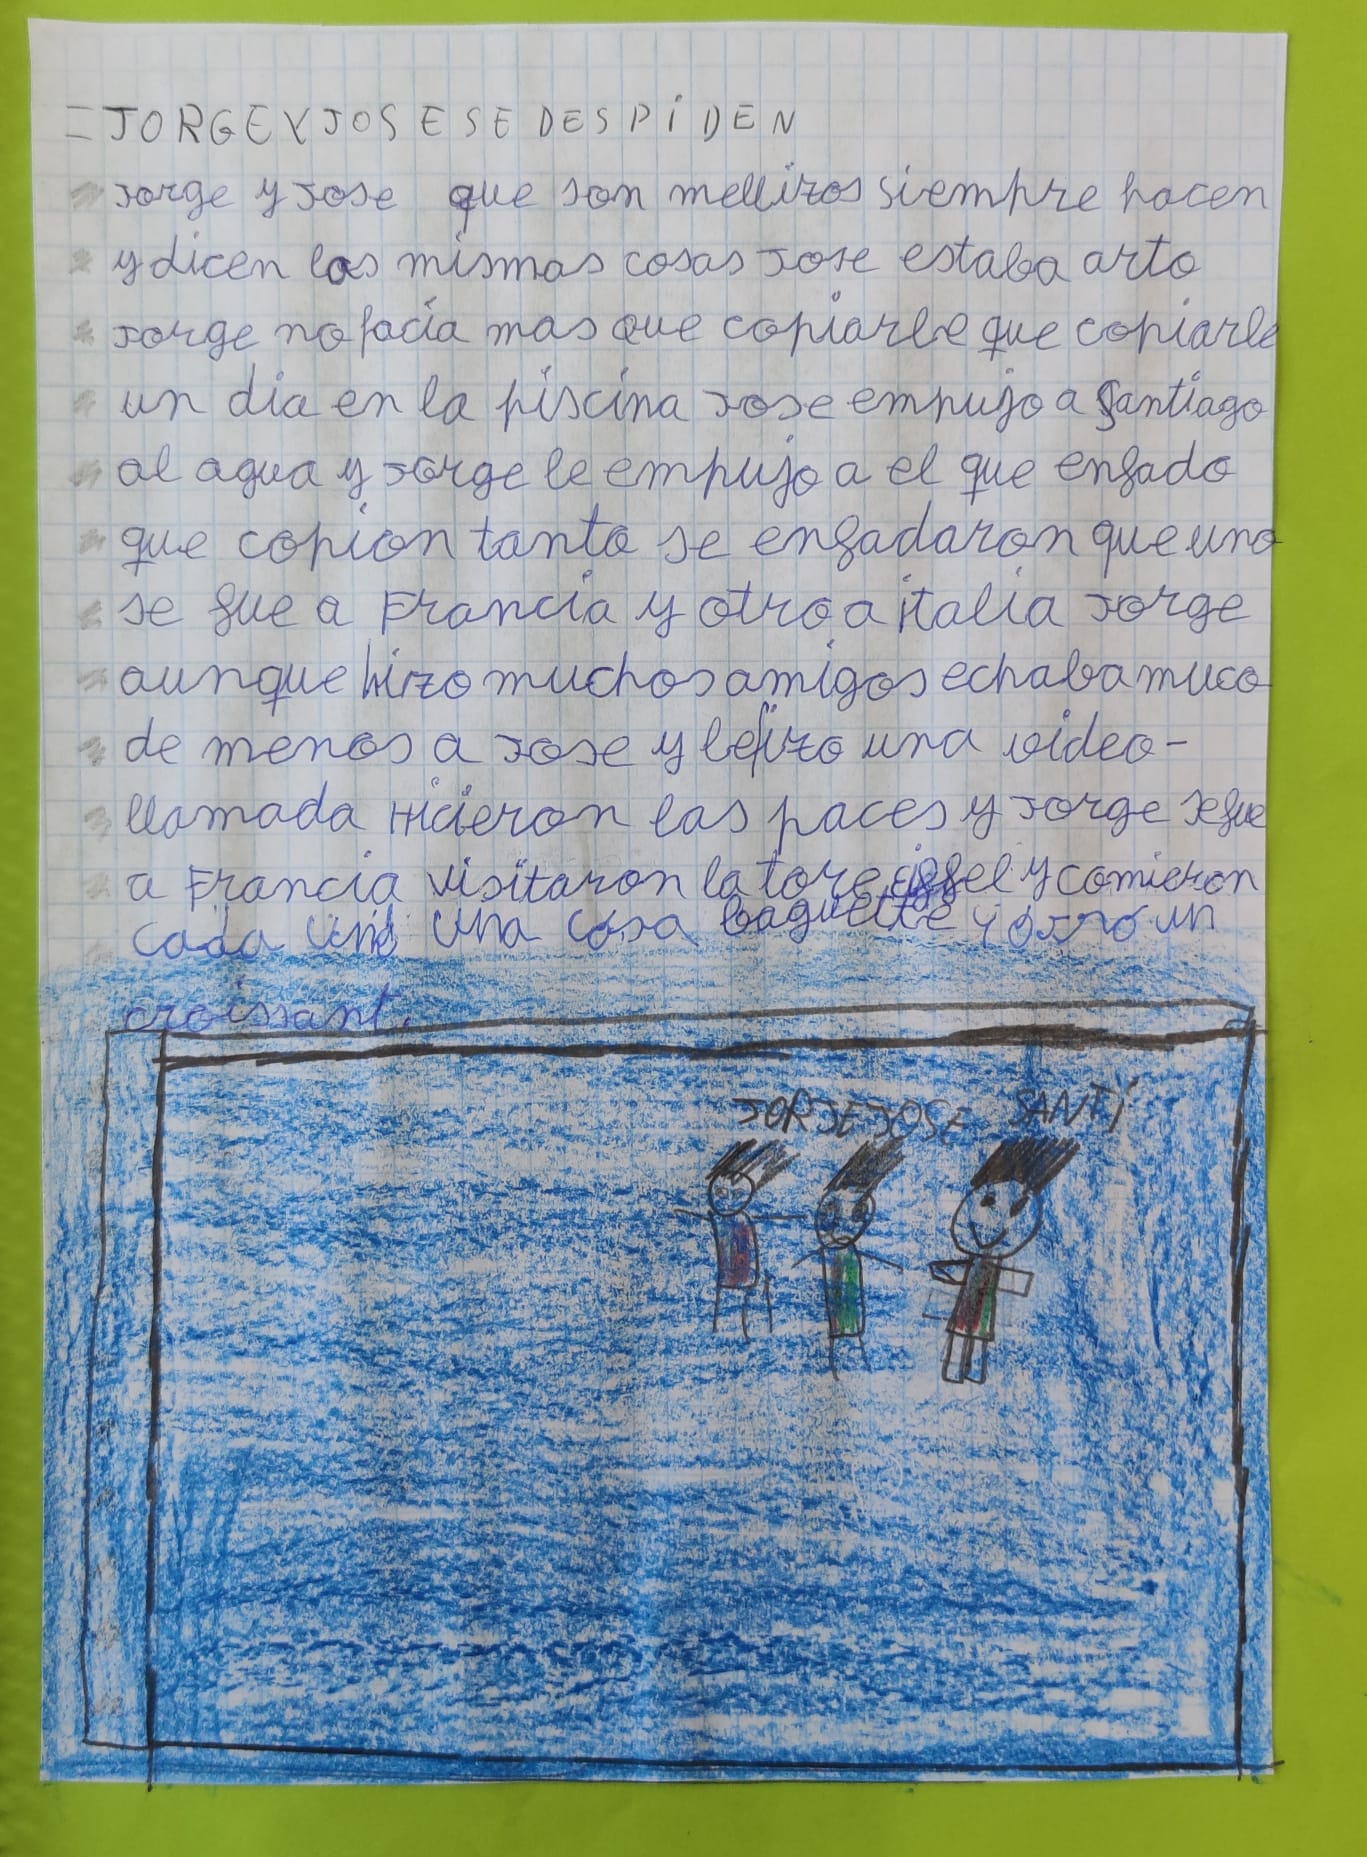 JORGE Y JOSE SE DESPIDEN
Jorge y Jose que son mellizos siempre hacen
y dicen las mismas cosas Jose estaba arto
Jorge no facia mas que copiarle que copiarle
un dia en la piscina Jose empujo a Santiago
al agua y Jorge le empujo a el que enfado
que copion tanto se enfadaron que uno
se fue a Francia y otro a italia Jorge
aunque hizo muchos amigos echaba muco
de menos a Jose y le hizo una video-
llamada Hicieron las paces y Jorge se fue
a Francia visitaron la tore eiffel y comieron
cada uno una cosa baguette y otro un
croissant.
JORJE JOSE SANTI